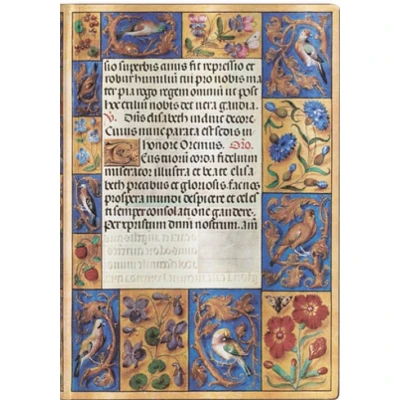 sio superbis annis fit repressio et
robur humiliũ tui pro nobis ma
ter pia rego regem omniũ ut post
hec exiliũ nobis det uera gaudia.
℣. Dñs elisabeth induit decore.
Cuius nunc parata est sedis in
honore Oremus. Oro.
Tuorũ corda fidelium
miserator illustra et beate elisa
beth precibus et gloriosis. fac nos
prospera mundi despicere et celes
ti semper consolatione gaudere.
Per xpistum dñm nostrum. am̃